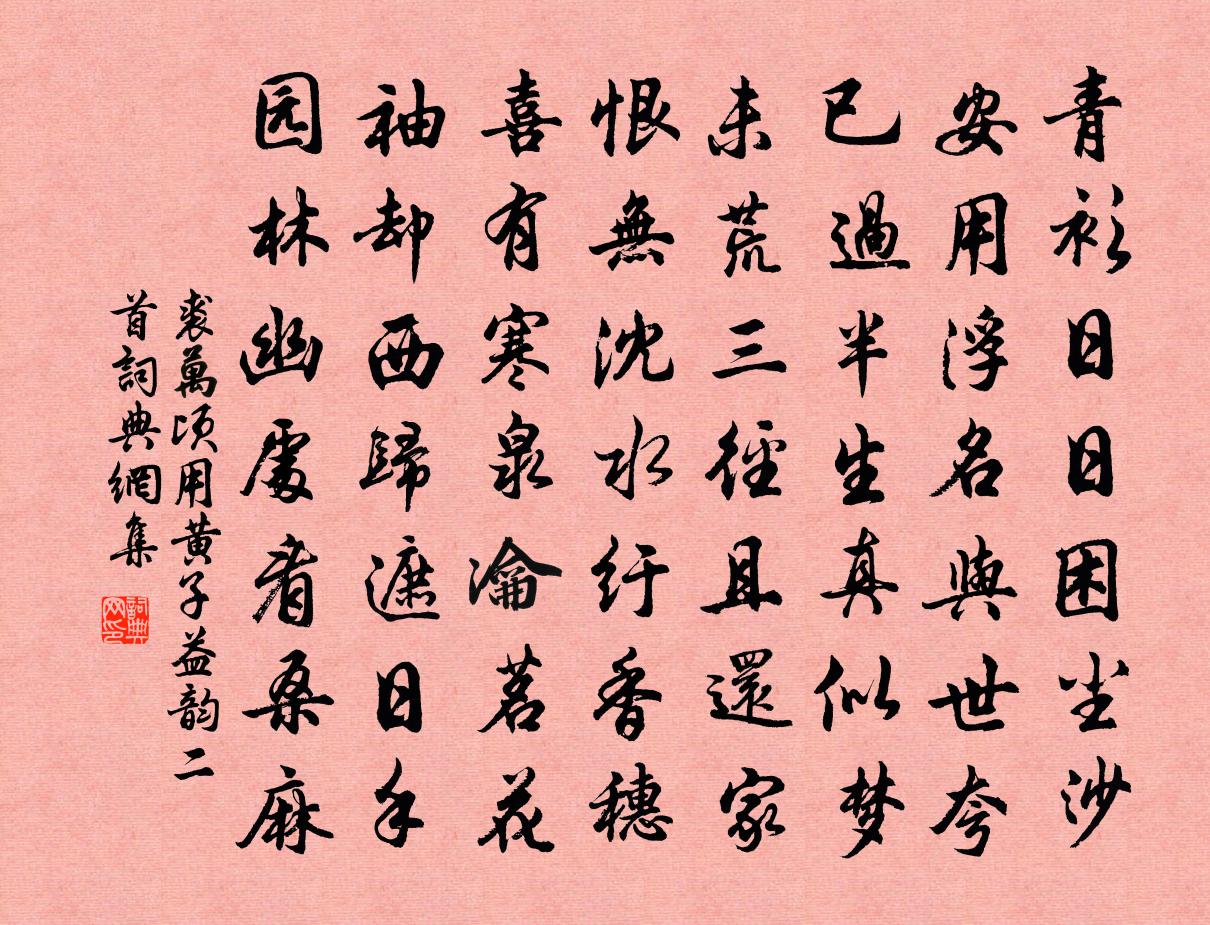 青衫日日困尘沙
安用浮名與世夸
已過半生真似梦
未荒三徑且還家
恨無沈水紆香穗
喜有寒泉瀹茗花
袖却西歸遮日手
园林幽處看桑麻
裘萬頃用黄子益韵二
首詞典網集
詞典网印